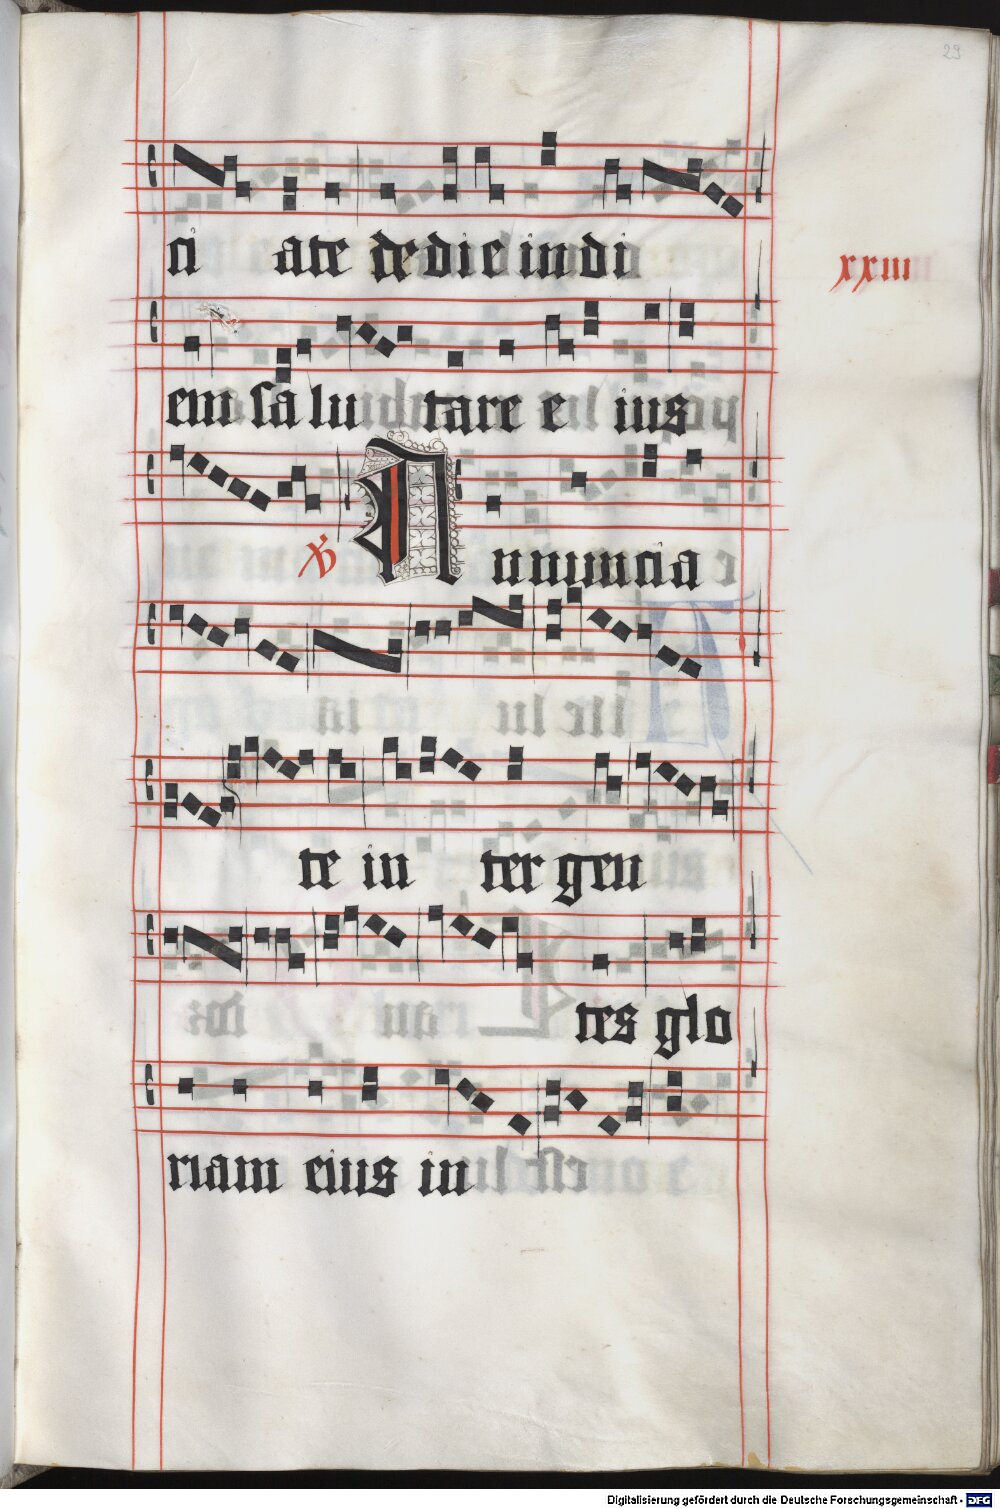 29
ci ate de die in di
xxiiii
em sa lu tare e ius
℣ Annuncia
te in ter gen
tes glo
riam eius in
Digitalisierung gefördert durch die Deutsche Forschungsgemeinschaft - DFG